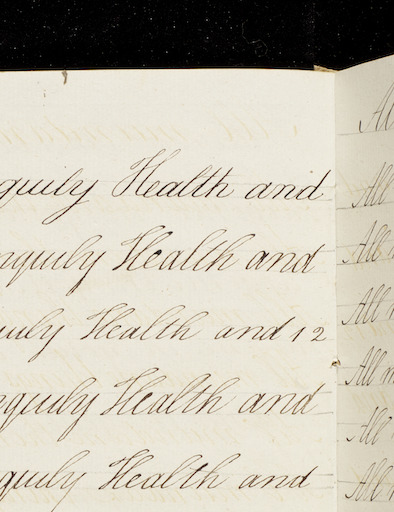 quily Health and
nquily Health and
uily Health and 12
nquily Health and
quily Health and
All
All
All
All m
All
All m